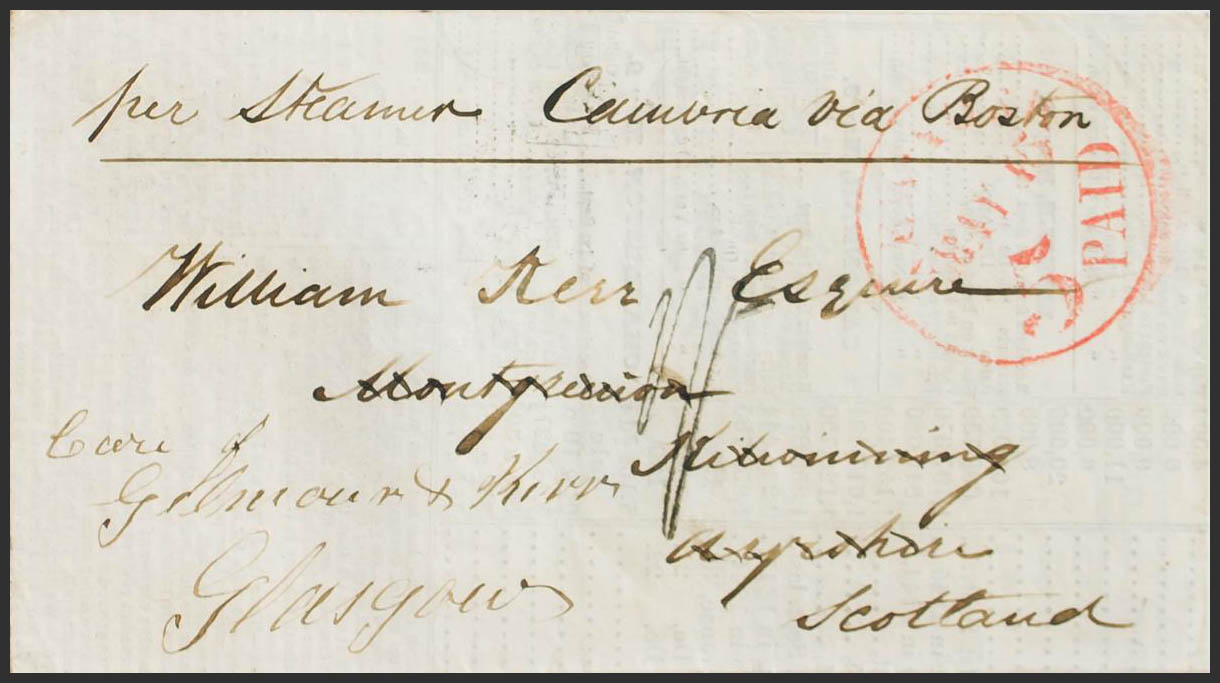 per Steamer Cambria via Boston
PAID
MAY
5
William Kerr Esquire
Kilwinning
Care of
Gilmour & Kerr
Ayrshire
Glasgow
Scotland